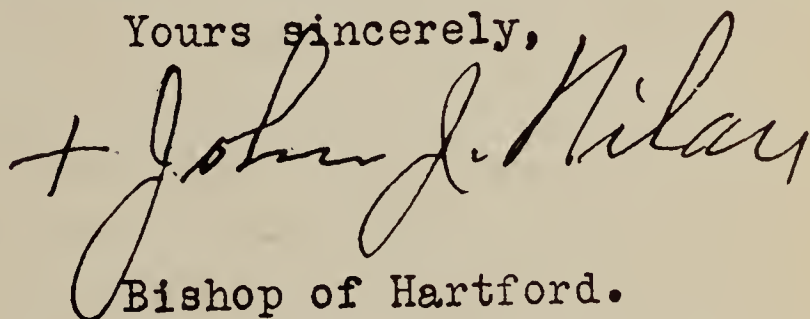 Yours sincerely,
+ John J. Nilan
Bishop of Hartford.